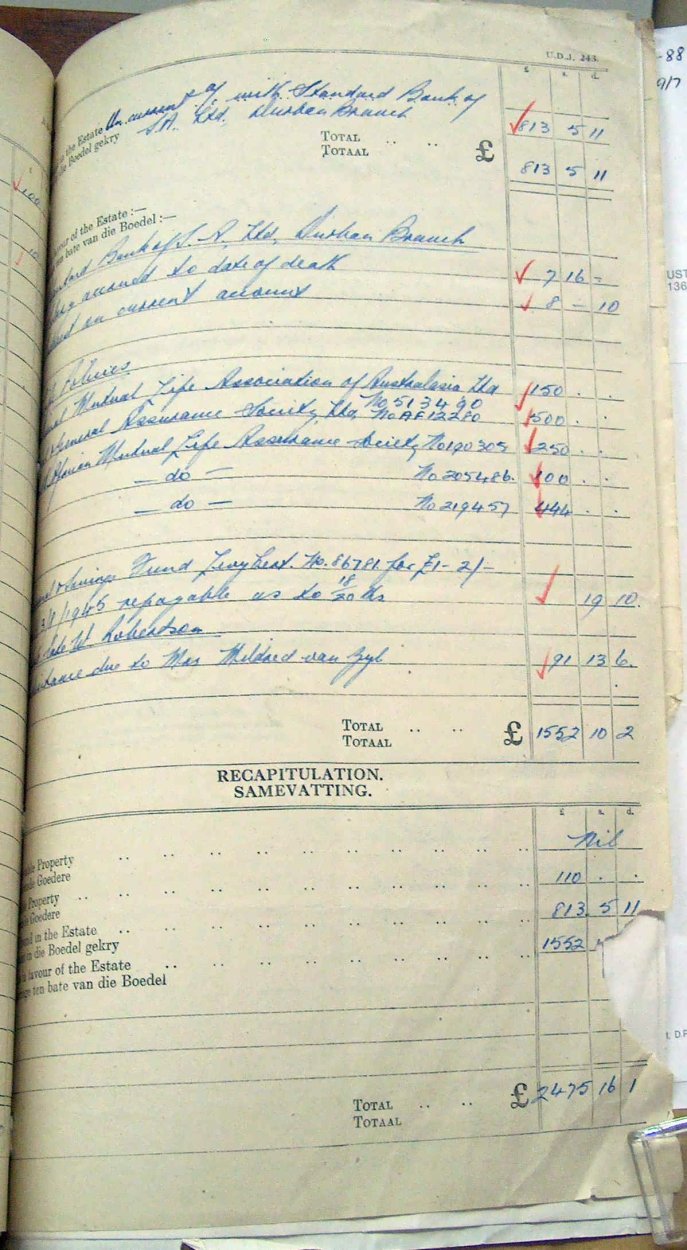 U.D.J. 243.
-88
9/7
£ s. d.
in the Estate On current a/c with Standard Bank of
Boedel gekry S.A. Ltd. Durban Branch 813 5 11
TOTAL
TOTAAL £ 813 5 11
100
avour of the Estate :—
ten bate van die Boedel :—
Bank of S. A. Ltd, Durban Branch
accrued to date of death 7 16 -
on current account 8 - 10
Policies
Mutual Life Association of Australasia Ltd
No 513490 150 . .
General Assurance Society Ltd, No AF12280 500 . .
Mutual Life Assurance Society No 190305 250 . .
— do — No 205486. 100 . .
— do — No 219457 444 . .
Savings Fund Levy Cert. No. 86781 for £1-2/-
/8/1945 repayable as to 18/20 ths 19 10.
late W Robertson
due to Mrs Mildred van Zyl 91 13 6.
TOTAL
TOTAAL £ 1552 10 2
RECAPITULATION.
SAMEVATTING.
£ s. d.
Property Nil
Goedere
Property 110 . .
Goedere
in the Estate 813 5 11
in die Boedel gekry
favour of the Estate 1552
ten bate van die Boedel
TOTAL £ 2475 16 1
TOTAAL
UST
136
D.P